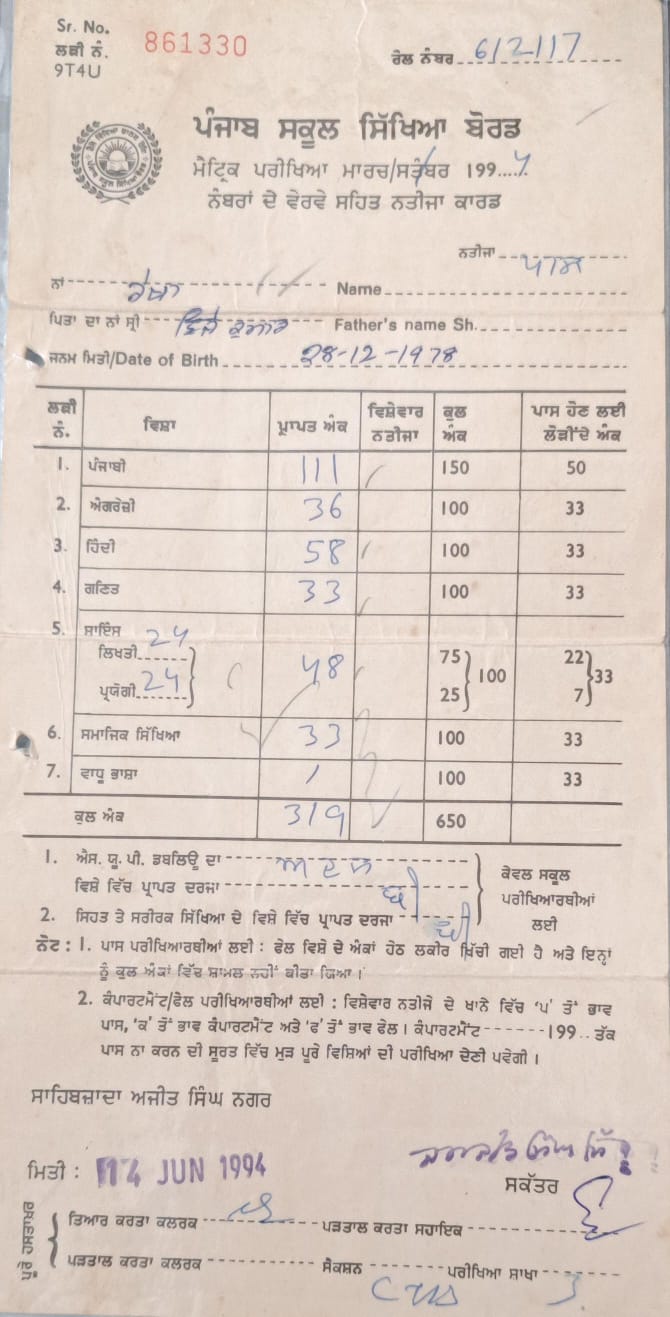 Sr. No.
ਲੜੀ ਨੰ. 861330 ਰੋਲ ਨੰਬਰ 612117
9T4U
ਪੰਜਾਬ ਸਕੂਲ ਸਿੱਖਿਆ ਬੋਰਡ
ਮੈਟ੍ਰਿਕ ਪਰੀਖਿਆ ਮਾਰਚ/ਸਤੰਬਰ 199....4
ਨੰਬਰਾਂ ਦੇ ਵੇਰਵੇ ਸਹਿਤ ਨਤੀਜਾ ਕਾਰਡ
ਨਤੀਜਾ ਪਾਸ
ਨਾਂ ਰੇਖਾ Name
ਪਿਤਾ ਦਾ ਨਾਂ ਸ੍ਰੀ ਵਿਜੈ ਕੁਮਾਰ Father's name Sh.
ਜਨਮ ਮਿਤੀ/Date of Birth 28-12-1978
ਲੜੀ ਨੰ. ਵਿਸ਼ਾ ਪ੍ਰਾਪਤ ਅੰਕ ਵਿਸ਼ੇਵਾਰ ਨਤੀਜਾ ਕੁਲ ਅੰਕ ਪਾਸ ਹੋਣ ਲਈ ਲੋੜੀਂਦੇ ਅੰਕ
1. ਪੰਜਾਬੀ 111 150 50
2. ਅੰਗਰੇਜ਼ੀ 36 100 33
3. ਹਿੰਦੀ 58 100 33
4. ਗਣਿਤ 33 100 33
5. ਸਾਇੰਸ
ਲਿਖਤੀ 24 75 22
48 100 33
ਪ੍ਰਯੋਗੀ 24 25 7
6. ਸਮਾਜਿਕ ਸਿੱਖਿਆ 33 100 33
7. ਵਾਧੂ ਭਾਸ਼ਾ / 100 33
ਕੁਲ ਅੰਕ 319 650
1. ਐਸ. ਯੂ. ਪੀ. ਡਬਲਿਊ ਦਾ
ਵਿਸ਼ੇ ਵਿੱਚ ਪ੍ਰਾਪਤ ਦਰਜਾ ਬੀ
2. ਸਿਹਤ ਤੇ ਸਰੀਰਕ ਸਿੱਖਿਆ ਦੇ ਵਿਸ਼ੇ ਵਿੱਚ ਪ੍ਰਾਪਤ ਦਰਜਾ ਬੀ
ਕੇਵਲ ਸਕੂਲ
ਪਰੀਖਿਆਰਥੀਆਂ
ਲਈ
ਨੋਟ : 1. ਪਾਸ ਪਰੀਖਿਆਰਥੀਆਂ ਲਈ : ਫੇਲ ਵਿਸ਼ੇ ਦੇ ਅੰਕਾਂ ਹੇਠ ਲਕੀਰ ਖਿੱਚੀ ਗਈ ਹੈ ਅਤੇ ਇਨ੍ਹਾਂ
ਨੂੰ ਕੁਲ ਅੰਕਾਂ ਵਿੱਚ ਸ਼ਾਮਲ ਨਹੀਂ ਕੀਤਾ ਗਿਆ।
2. ਕੰਪਾਰਟਮੈਂਟ/ਫੇਲ ਪਰੀਖਿਆਰਥੀਆਂ ਲਈ : ਵਿਸ਼ੇਵਾਰ ਨਤੀਜੇ ਦੇ ਖਾਨੇ ਵਿੱਚ 'ਪ' ਤੋਂ ਭਾਵ
ਪਾਸ, 'ਕ' ਤੋਂ ਭਾਵ ਕੰਪਾਰਟਮੈਂਟ ਅਤੇ 'ਫ' ਤੋਂ ਭਾਵ ਫੇਲ। ਕੰਪਾਰਟਮੈਂਟ ------199.. ਤੱਕ
ਪਾਸ ਨਾ ਕਰਨ ਦੀ ਸੂਰਤ ਵਿੱਚ ਮੁੜ ਪੂਰੇ ਵਿਸ਼ਿਆਂ ਦੀ ਪਰੀਖਿਆ ਦੇਣੀ ਪਵੇਗੀ।
ਸਾਹਿਬਜ਼ਾਦਾ ਅਜੀਤ ਸਿੰਘ ਨਗਰ
ਮਿਤੀ : 14 JUN 1994
ਸਕੱਤਰ
ਪੂਰੇ ਹਸਤਾਖ਼ਰ
ਤਿਆਰ ਕਰਤਾ ਕਲਰਕ ਪੜਤਾਲ ਕਰਤਾ ਸਹਾਇਕ
ਪੜਤਾਲ ਕਰਤਾ ਕਲਰਕ ਸੈਕਸ਼ਨ ਪਰੀਖਿਆ ਸ਼ਾਖਾ